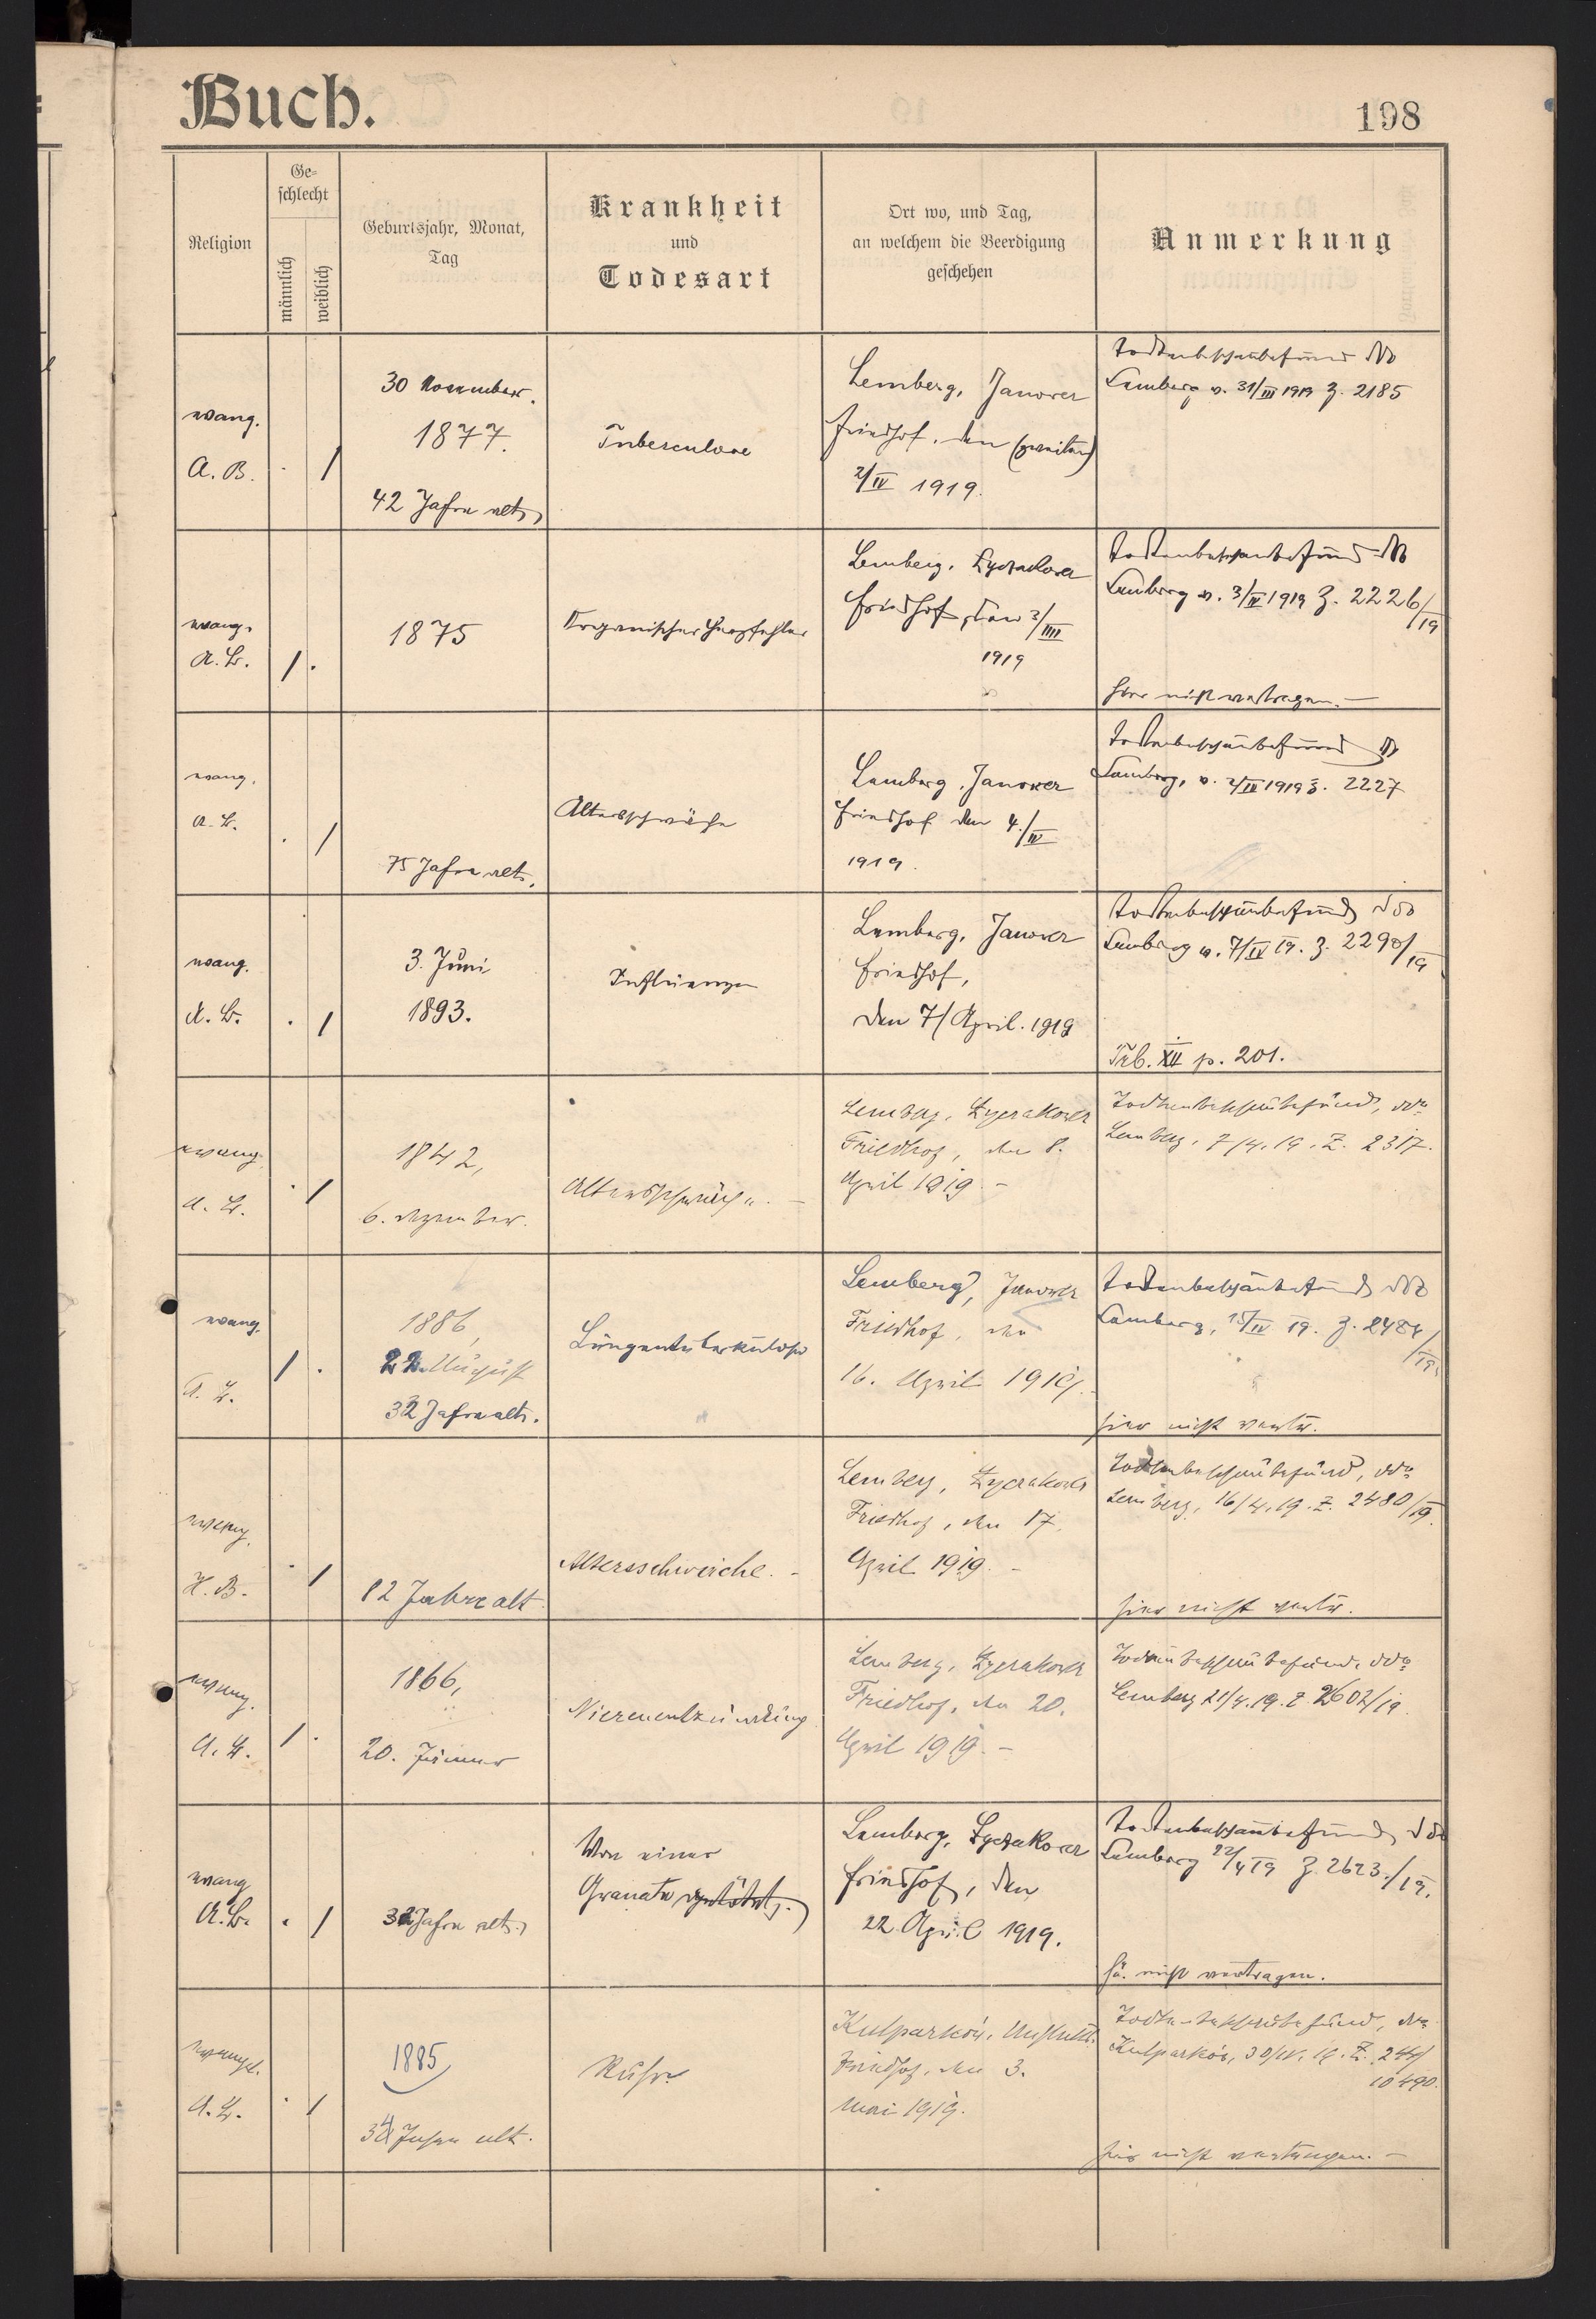 Buch.
198
Religion
Ge-
schlecht
männlich
weiblich
Geburtsjahr, Monat,
Tag
Krankheit
und
Todesart
Ort wo, und Tag,
an welchem die Beerdigung
geschehen
Anmerkung
evang.
A. B.
/
30 November.
1877.
42 Jahre alt,
Tuberculose
Lemberg, Janover
Friedhof, den (zweiten)
2/IV 1919.
Todtenbeschaubefund ddo
Lemberg v. 31/III 1919 Z. 2185
evang.
A. B.
/ .
1875
Organischer Herzfehler
Lemberg, Lyczakover
Friedhof, den 3/IIII
1919
Todtenbeschaubefund ddo
Lemberg v. 3/IV 1919 Z. 2226/19
hier nicht eingetragen. —
evang.
A. B.
. /
75 Jahre alt,
Altersschwäche
Lemberg, Janover
Friedhof den 4./IV
1919.
Todtenbeschaubefund
Lemberg, v. 2/IV 1919 Z. 2227
evang.
A. B.
. /
3. Juni
1893.
Influenza
Lemberg, Janover
Friedhof,
den 7/ April. 1919
Todtenbeschaubefund ddo
Lemberg v. 7/IV 19. Z. 2290/19
Trb. XII p. 201.
evang.
A. B.
. /
1842,
6. Dezember.
Altersschwäche. —
Lemberg, Lyczakover
Friedhof, den 8.
April 1919. —
Todtenbeschaubefund, ddo
Lemberg, 7/4. 19. Z. 2317.
evang.
A. B.
/ .
1886,
22. August
32 Jahre alt.
Lungentuberkulose
Lemberg, Janover
Friedhof, den
16. April 1919.
Todtenbeschaubefund ddo
Lemberg, 15/IV 19. Z. 2484/19.
hier nicht
evang.
H. B.
. /
82 Jahre alt
Altersschwäche. -
Lemberg, Lyczakover
Friedhof, den 17.
April 1919. -
Todtenbeschaubefund, ddo
Lemberg, 16/4. 19. Z. 2480/19.
hier nicht
evang.
A. B.
/ .
1866,
20. Jänner
Nierenentzündung
Lemberg, Lyczakover
Friedhof, den 20.
April 1919. -
Todtenbeschaubefund ddo
Lemberg 21/4. 19. Z. 2602/19.
evang
A. B.
. /
Jahre alt,
Von einer
Granate getötet.
Lemberg, Lyczakover
Friedhof, den
22 April 1919.
Todtenbeschaubefund ddo
Lemberg 22/4 19 Z. 2623./19.
nicht
A. B.
. /
1885
34 Jahre alt.
Ruhr
Kulparków, Anstalts
Friedhof, den 3.
Mai 1919.
Todtenbeschaubefund, ddo
Kulparków, 30/IV. 19. Z. 244/
10490.
hier nicht